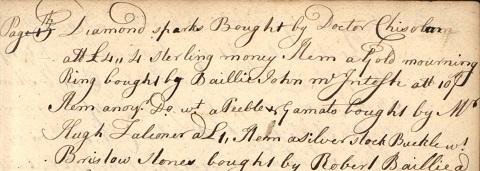 Page 15th Diamond sparks Bought by Doctor Chisolam
att £4,,4 Sterling money Item a Gold mourning
Ring bought by Baillie John mc Intosh att 10/
Item anoyr. Do. wt a Peeble & Gamats bought by Mr
Hugh Falconer a £1, Item a silver stock Buckle wt.
Bristow Stones bought by Robert Baillie a